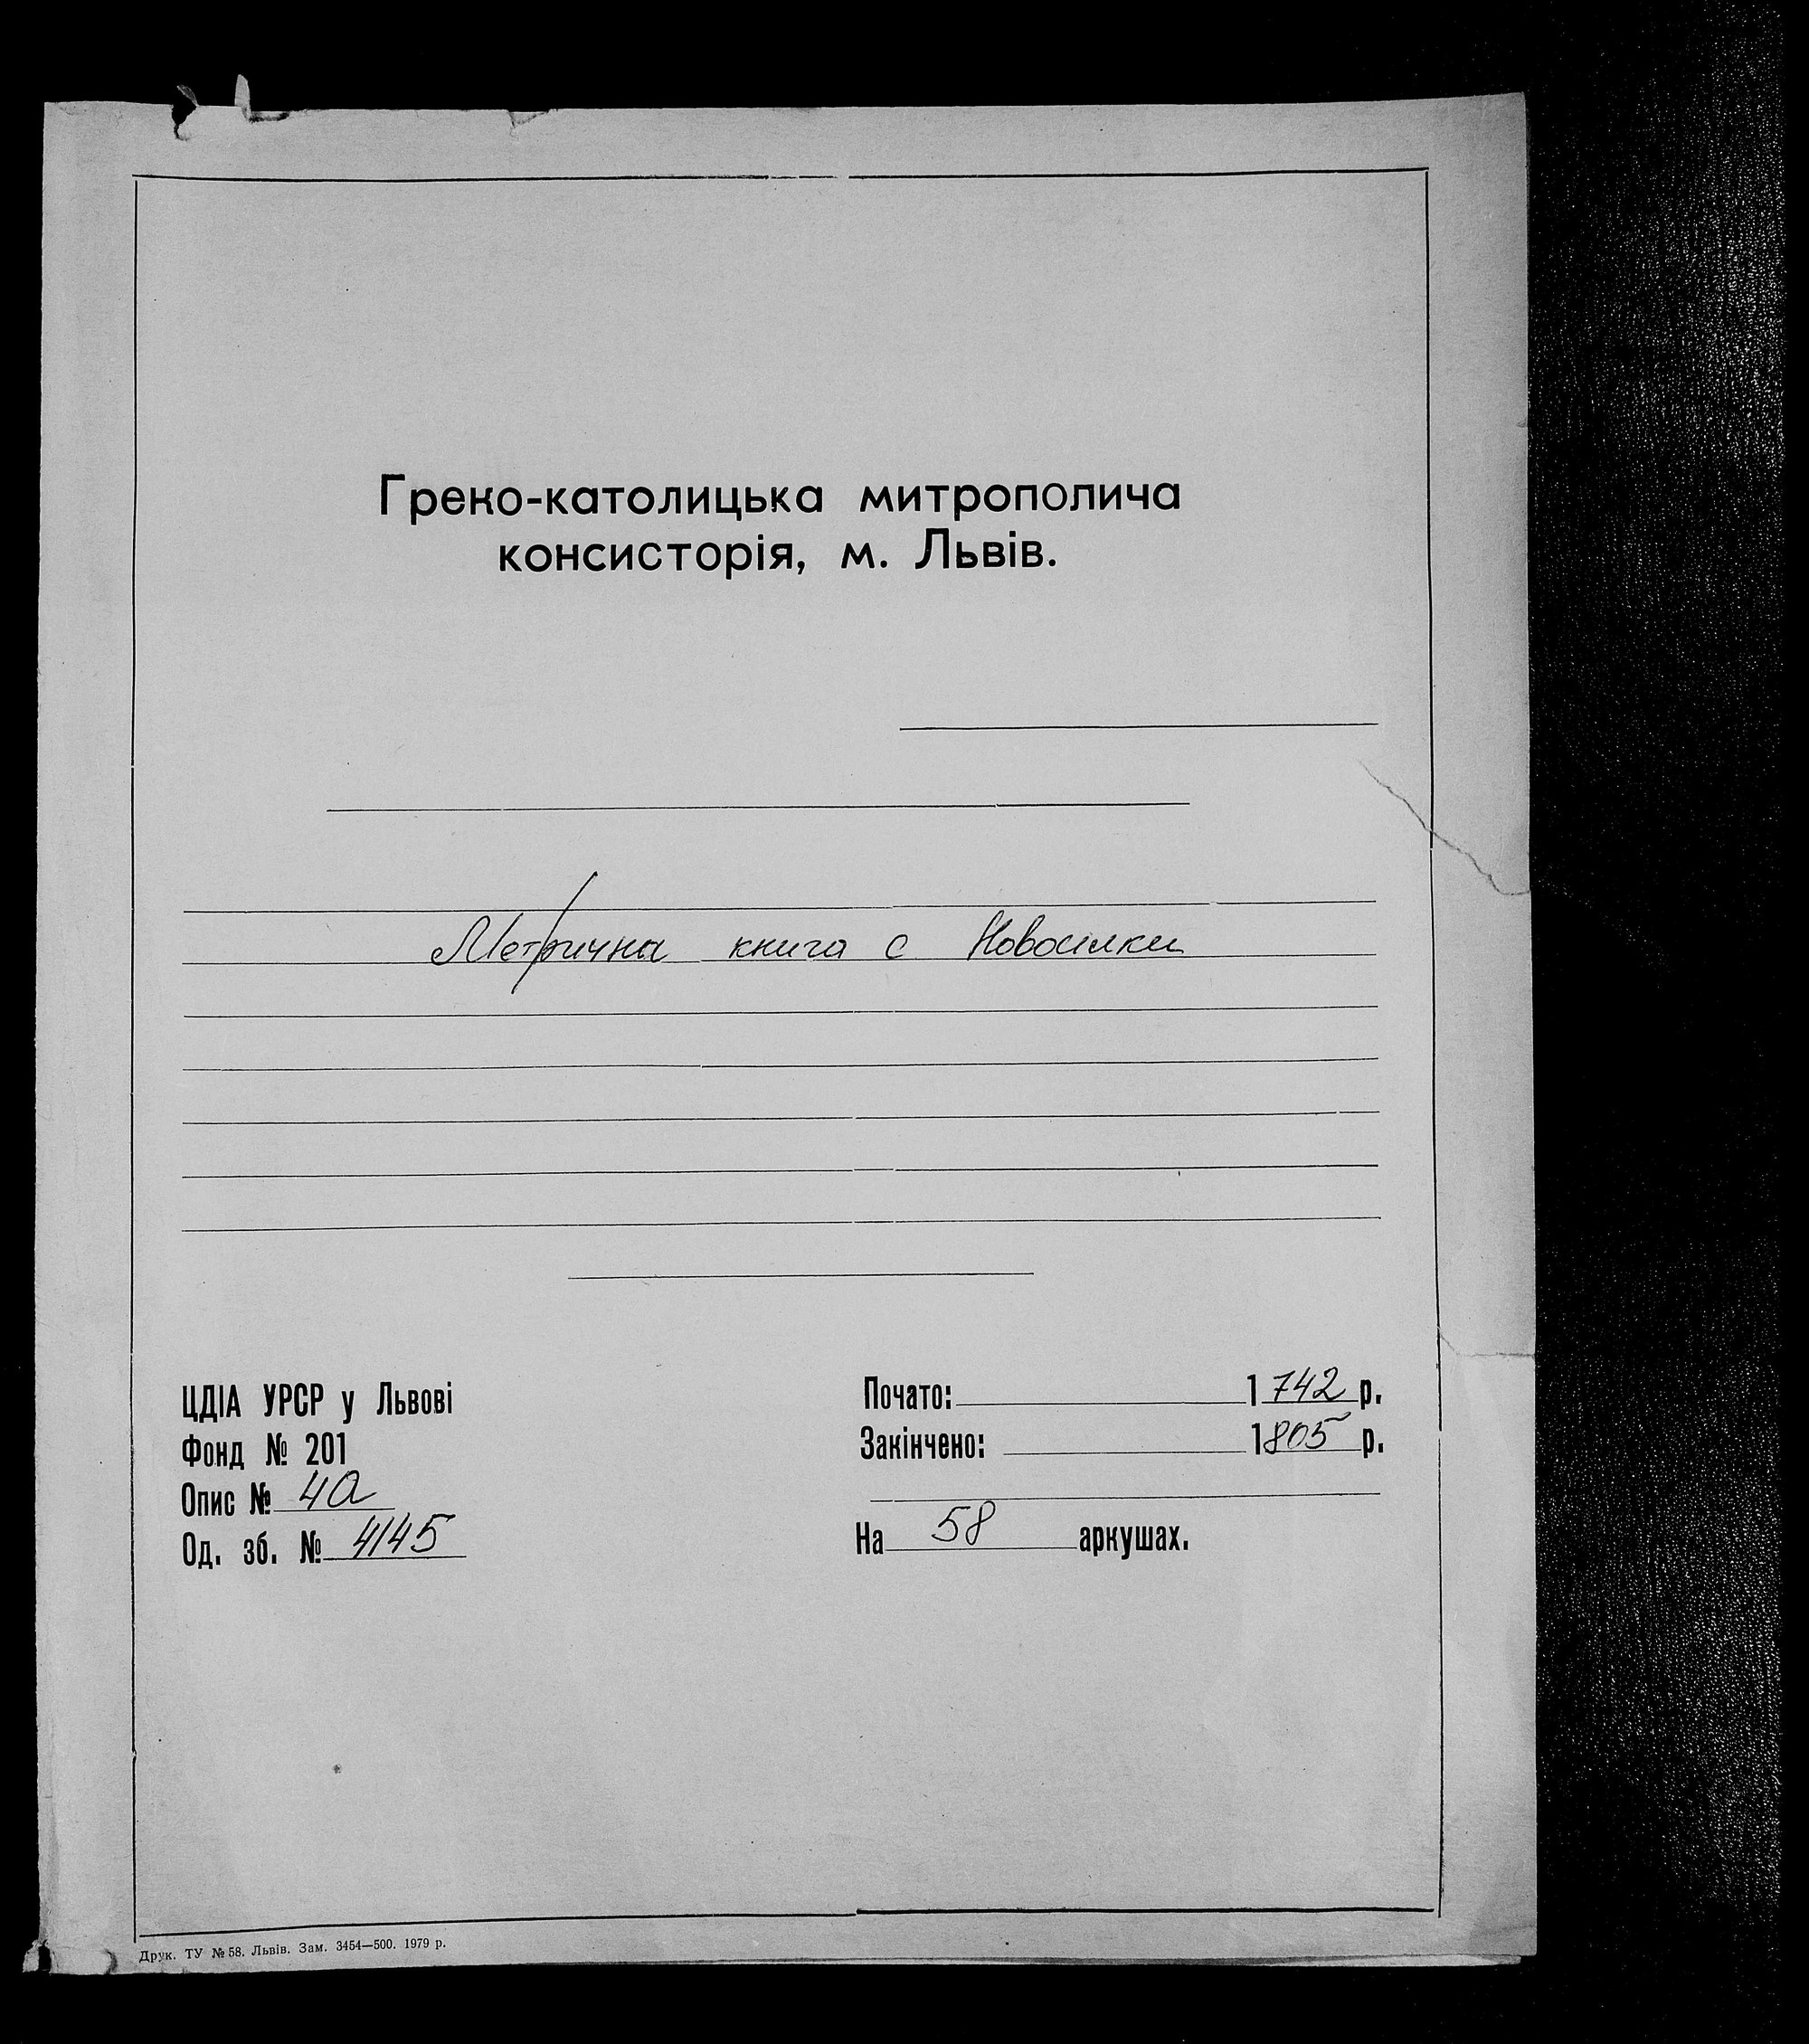 Греко-католицька митрополича
консисторія, м. Львів.
Метрична книга с Новосилки
ЦДІА УРСР у Львові
Фонд № 201
Опис № 4а
Од. зб. № 4145
Почато: 1742 р.
Закінчено: 1805 р.
На 58 аркушах.
Друк. ТУ № 58. Львів. Зам. 3454—500. 1979 р.